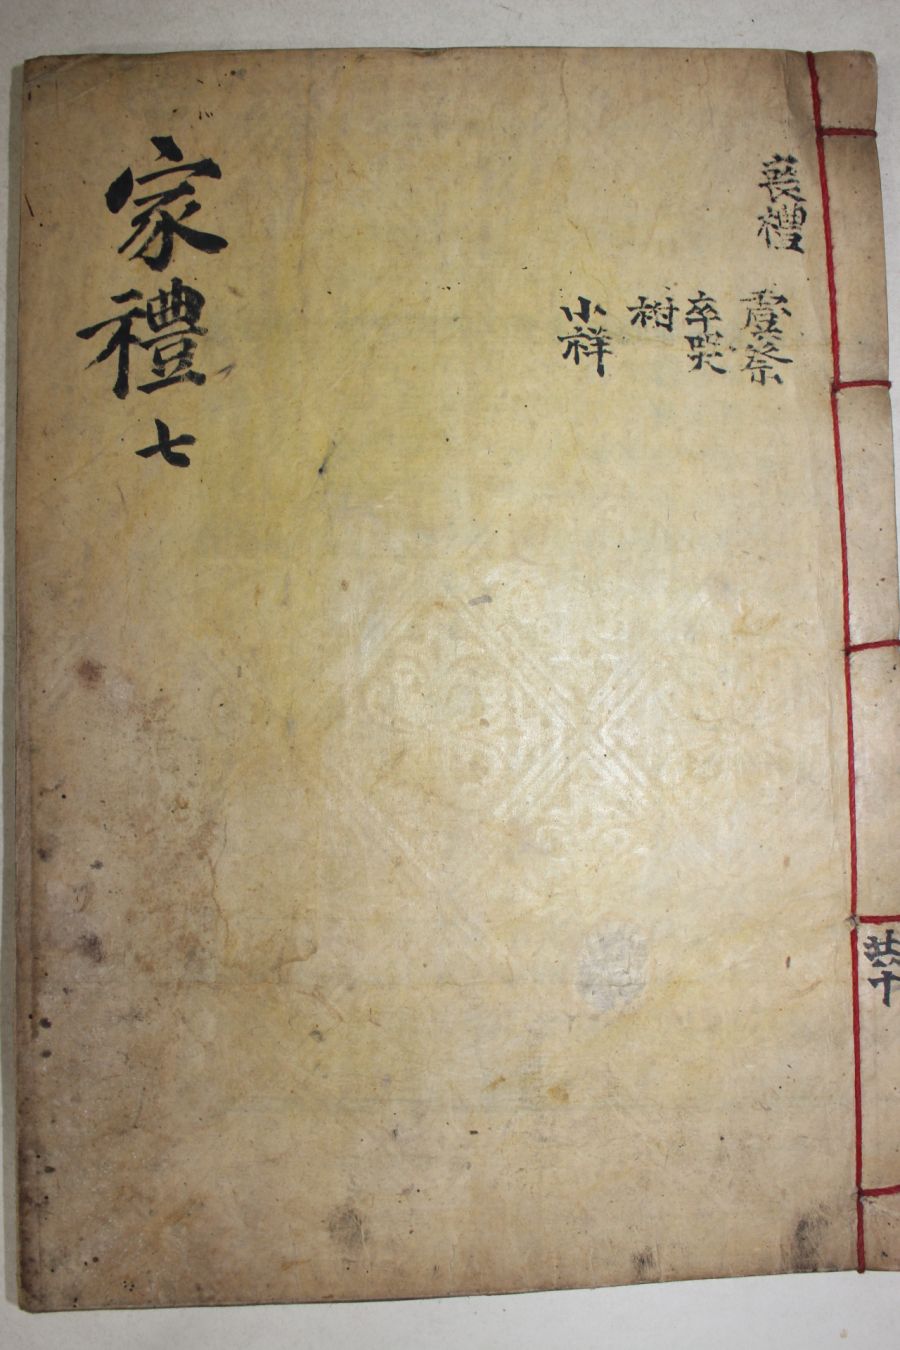 喪禮
虞祭
卒哭
祔
小祥
家禮 七
共十